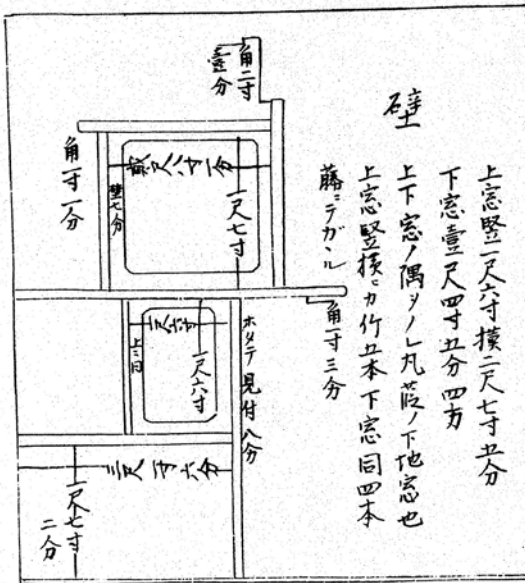 壁
上窓竪一尺六寸横二尺七寸五分
下窓壹尺四寸五分四方
上下窓ノ隅少ノレ丸葭ノ下地窓也
上窓竪横ニカ竹五本下窓同四本
藤ニテガール
角二寸
壹分
角一寸一分
貳尺八寸一分
壁七分
一尺七寸
角一寸三分
ホタテ見付八分
上ニ同
一尺六寸
三尺一寸六分
一尺七寸
二分